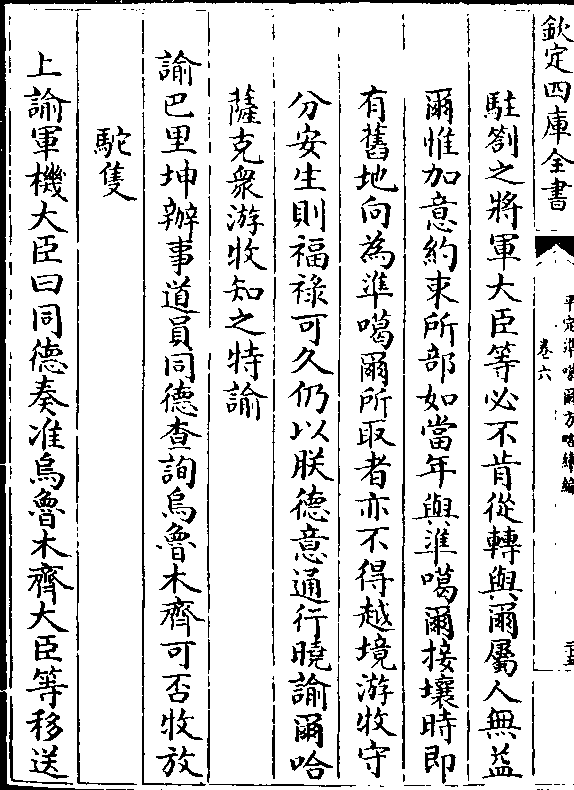 欽定四庫全書
平定準噶爾方略續編
卷六
駐劄之將軍大臣等必不肯從轉與爾屬人無益
爾惟加意約束所部如當年與準噶爾接壤時即
有舊地向為準噶爾所取者亦不得越境游牧守
分安生則福祿可久仍以朕德意通行曉諭爾哈
薩克衆游牧知之特諭
諭巴里坤辦事道員同德查詢烏魯木齊可否牧放
駝隻
上諭軍機大臣曰同德奏准烏魯木齊大臣等移送